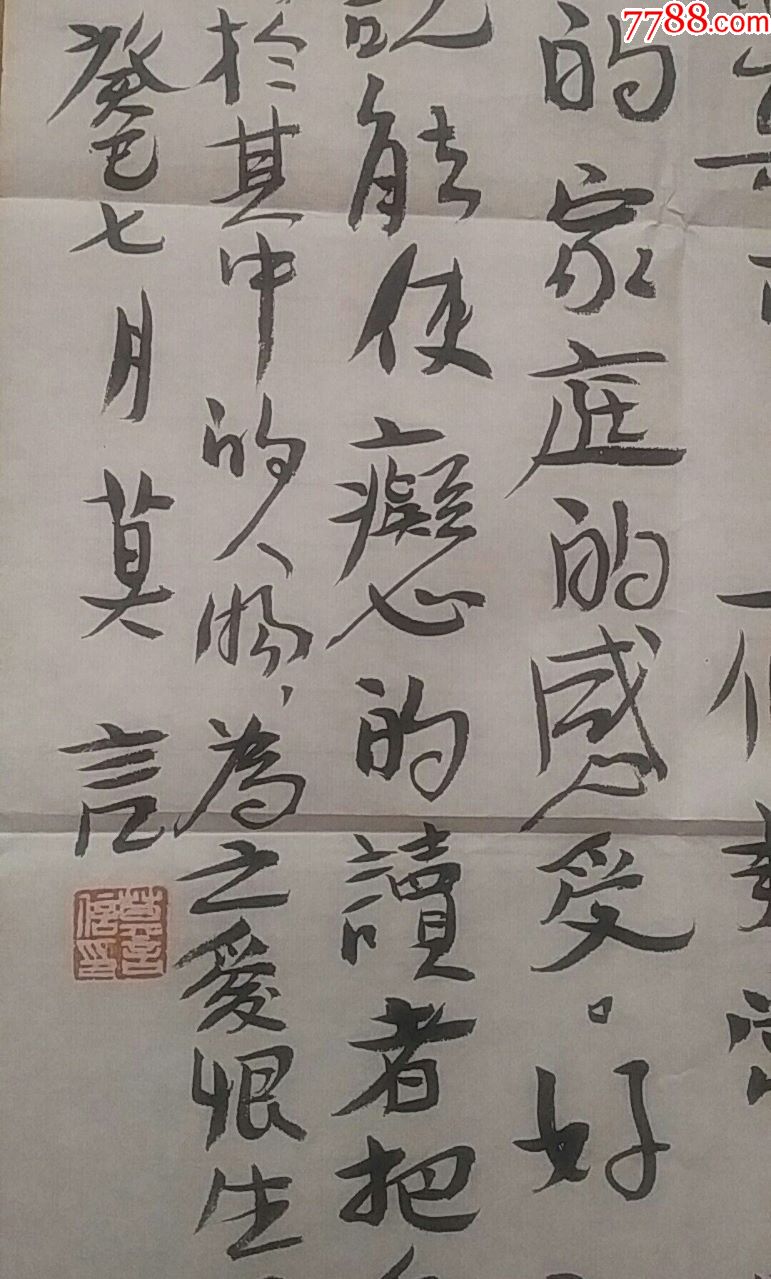 7788.com
一個
的家庭的感受。好
說能使癡心的讀者把
於其中的人物，為之愛恨生
癸巳七月 莫言
莫言信印